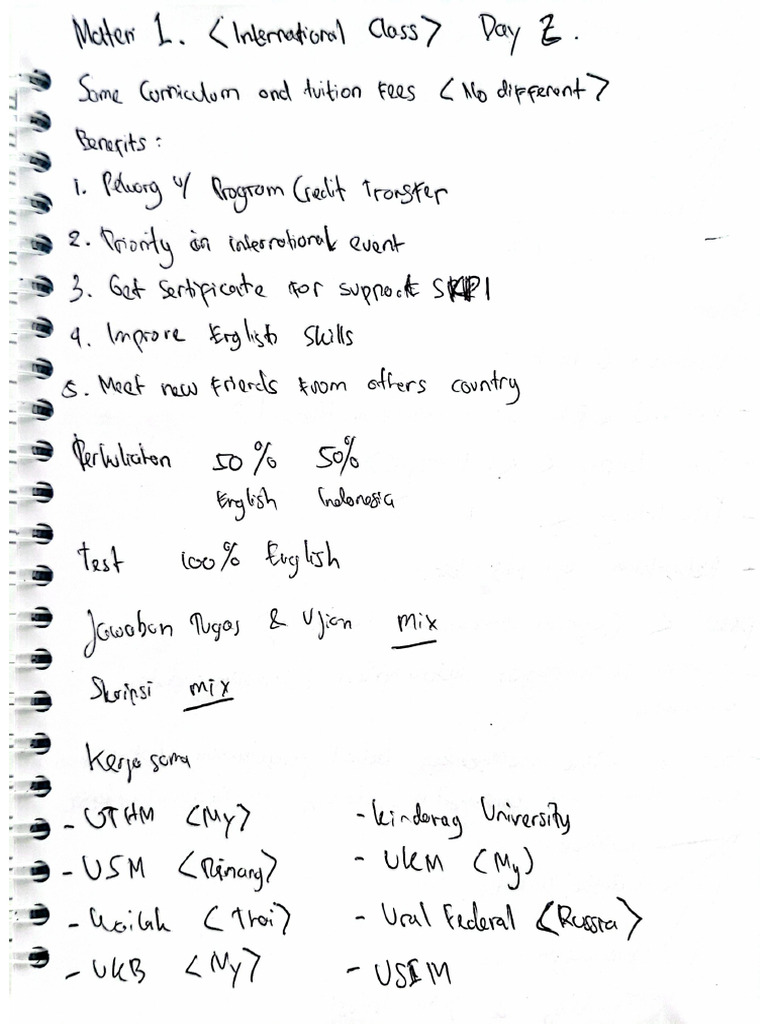 Materi 1. <International Class> Day 2.
Same Curriculum and tuition Fees <No different>
Benefits :
1. Peluang u/ Program Credit Transfer
2. Priority in international event
3. Get Sertificate for support SKPI
4. Improve English Skills
5. Meet new Friends from others country
Perkuliahan 50% 50%
English Indonesia
test 100% English
Jawaban Tugas & Ujian mix
Skripsi mix
Kerja sama
- UTHM <My> - University
- USM <Pinang> - UKM (My)
- <Thai> - Ural Federal <Russia>
- UKB <My> - USIM